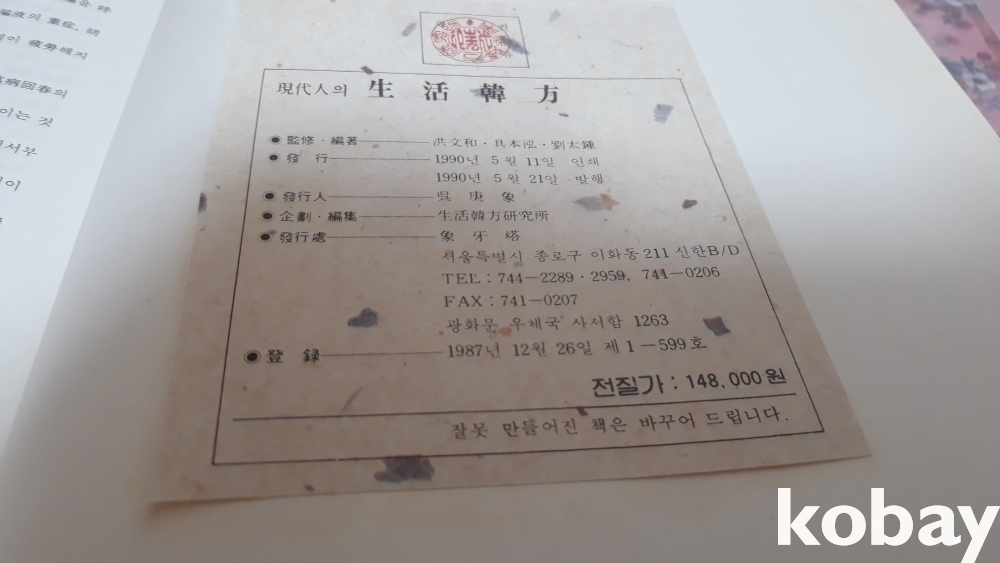 液의 重症, 胡
이 疲勞해지
病回春의
이는 것
서부
이
現代人의 生活韓方
● 監修·編著 洪文和·具本泓·劉太鍾
● 發 行 1990년 5월 11일 인쇄
1990년 5월 21일 발행
● 發行人 吳 庚 象
● 企劃·編集 生活韓方研究所
● 發行處 象 牙 塔
서울특별시 종로구 이화동 211 신한B/D
TEL : 744-2289 · 2959, 741-0206
FAX : 741-0207
광화문 우체국 사서함 1263
● 登 錄 1987년 12월 26일 제 1-599호
전질가 : 148,000원
잘못 만들어진 책은 바꾸어 드립니다.
kobay